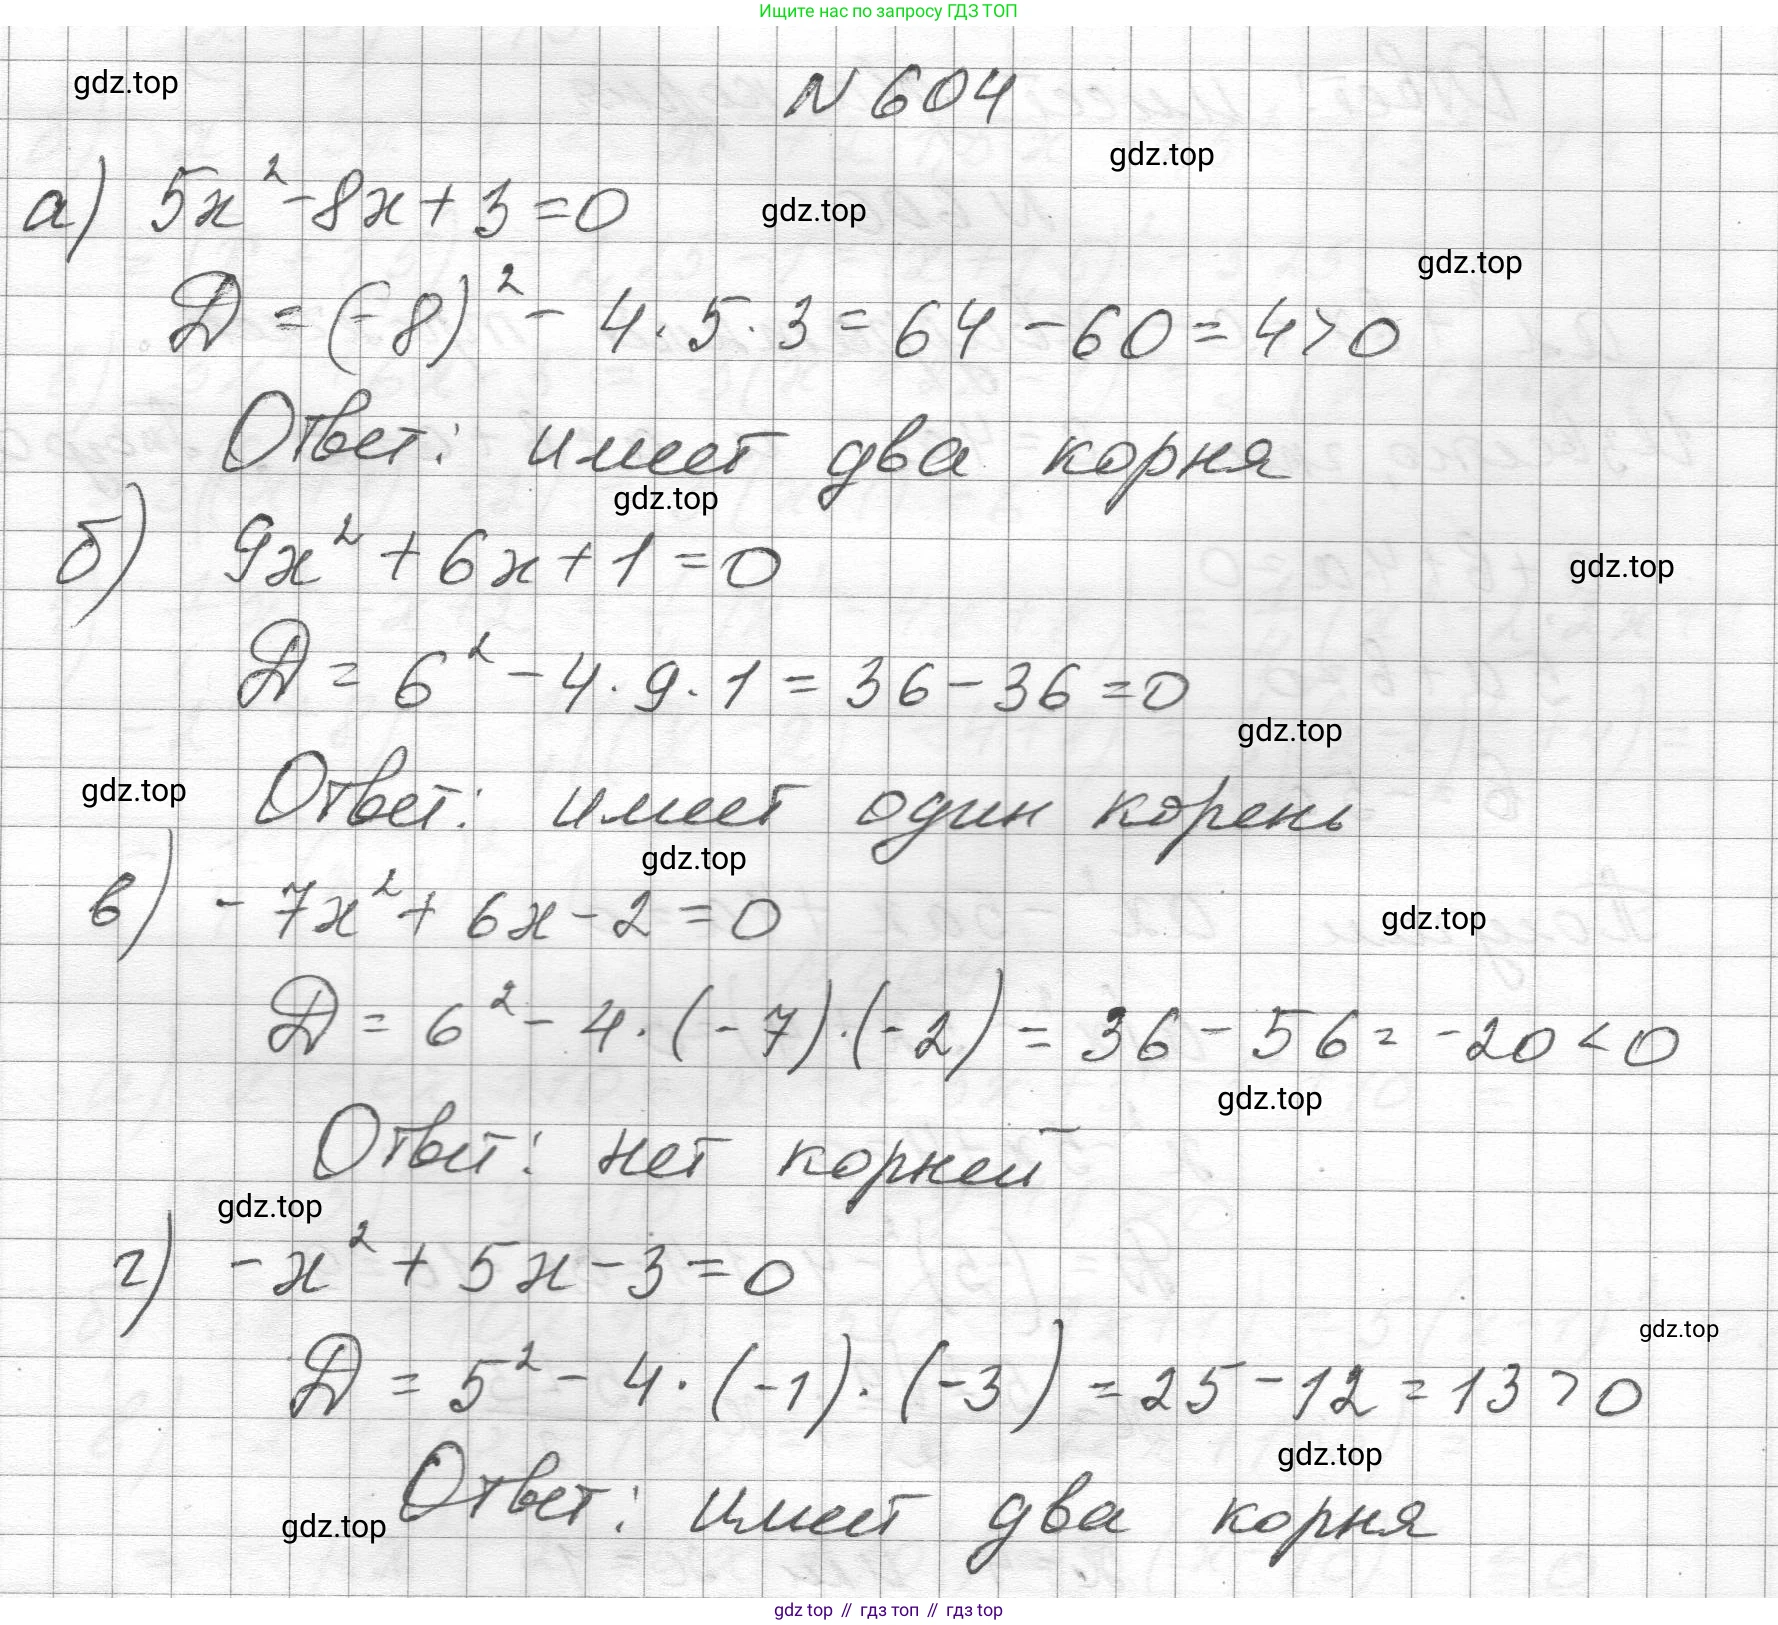 Ищите нас по запросу ГДЗ ТОП
gdz.top
N 604
gdz.top
а) 5x² - 8x + 3 = 0
gdz.top
gdz.top
D = (-8)² - 4 · 5 · 3 = 64 - 60 = 4 > 0
Ответ: имеет два корня
gdz.top
б) 9x² + 6x + 1 = 0
gdz.top
D = 6² - 4 · 9 · 1 = 36 - 36 = 0
gdz.top
gdz.top
Ответ: имеет один корень
gdz.top
в) - 7x² + 6x - 2 = 0
gdz.top
D = 6² - 4 · (-7) · (-2) = 36 - 56 = -20 < 0
gdz.top
Ответ: нет корней
gdz.top
г) -x² + 5x - 3 = 0
gdz.top
D = 5² - 4 · (-1) · (-3) = 25 - 12 = 13 > 0
gdz.top
Ответ: имеет два корня
gdz.top
gdz top // гдз топ // гдз top